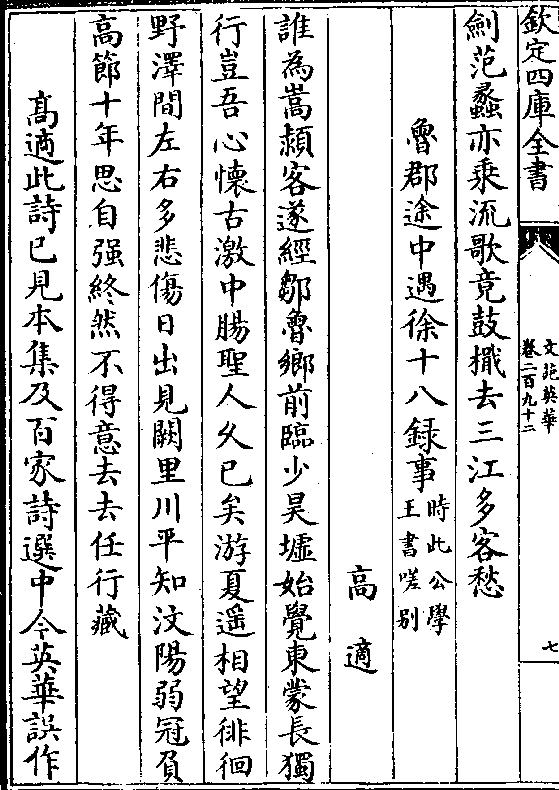 欽定四庫全書
文苑英華
卷二百九十二
七
劍范蠡亦乘流歌竟鼓擑去三江多客愁
魯郡途中遇徐十八録事時此公學王書嗟别
高適
誰為嵩潁客遂經鄒魯鄉前臨少昊墟始覺東蒙長獨
行豈吾心懐古激中腸聖人久已矣游夏遥相望徘徊
野澤間左右多悲傷日出見闕里川平知汶陽弱冠負
高節十年思自强終然不得意去去任行藏
高適此詩已見本集及百家詩選中今英華誤作